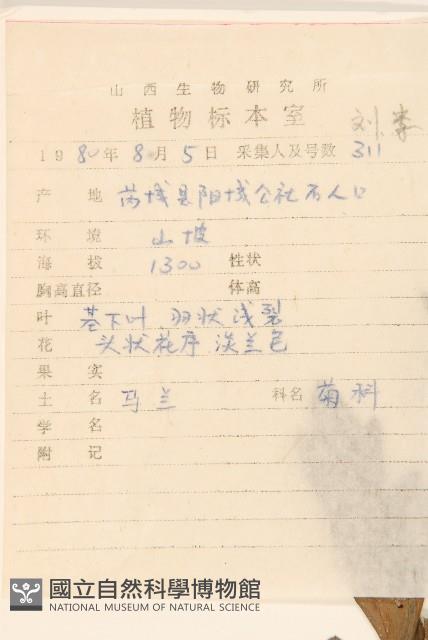 山西生物研究所
植物标本室
刘 李
1980年8月5日 采集人及号数 311
产地 芮城县阳城公社万人口
环境 山坡
海拔 1300 性状
胸高直径 体高
叶 茎下叶 羽状浅裂
花 头状花序 淡兰色
果实
土名 马兰 科名 菊科
学名
附记
國立自然科學博物館
NATIONAL MUSEUM OF NATURAL SCIENCE